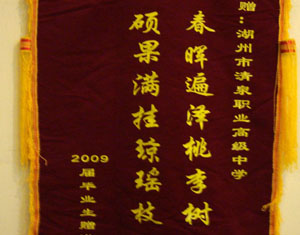 赠：湖州市清泉职业高级中学
春晖遍泽桃李树
硕果满挂琼瑶枝
2009届毕业生赠